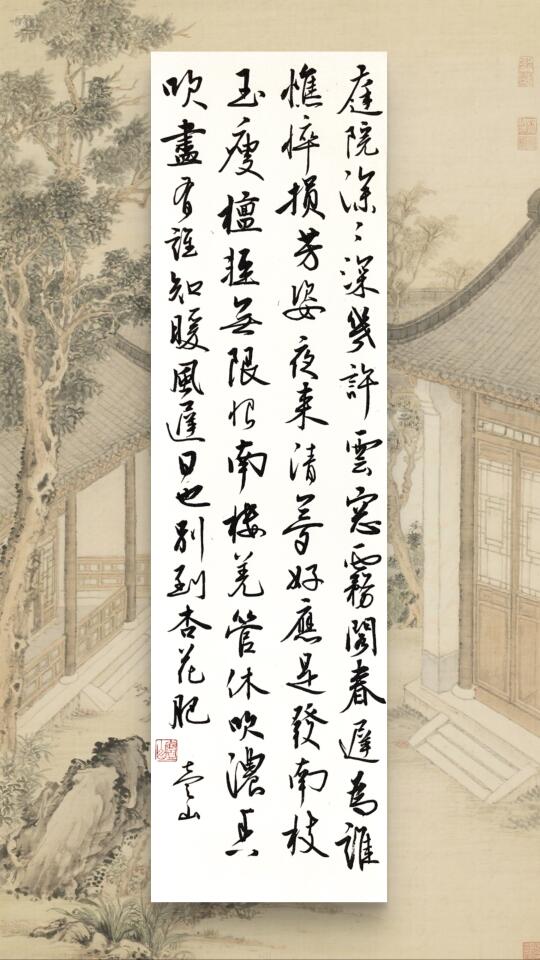 庭院深〻深幾許雲窓霧閣春遲為誰
憔悴損芳姿夜来清夢好應是發南枝
玉瘦檀輕無限恨南樓羌管休吹濃香
吹盡有誰知暖風遲日也別到杏花肥